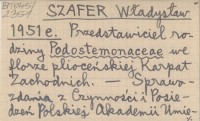 SZAFER Władysław
1951 r. Przedstawiciel ro-
dziny Podostemonaceae we
florze plioceńskiej Karpat
Zachodnich. — Sprawo-
zdania z Czynności i Posie-
dzeń Polskiej Akademii Umie-